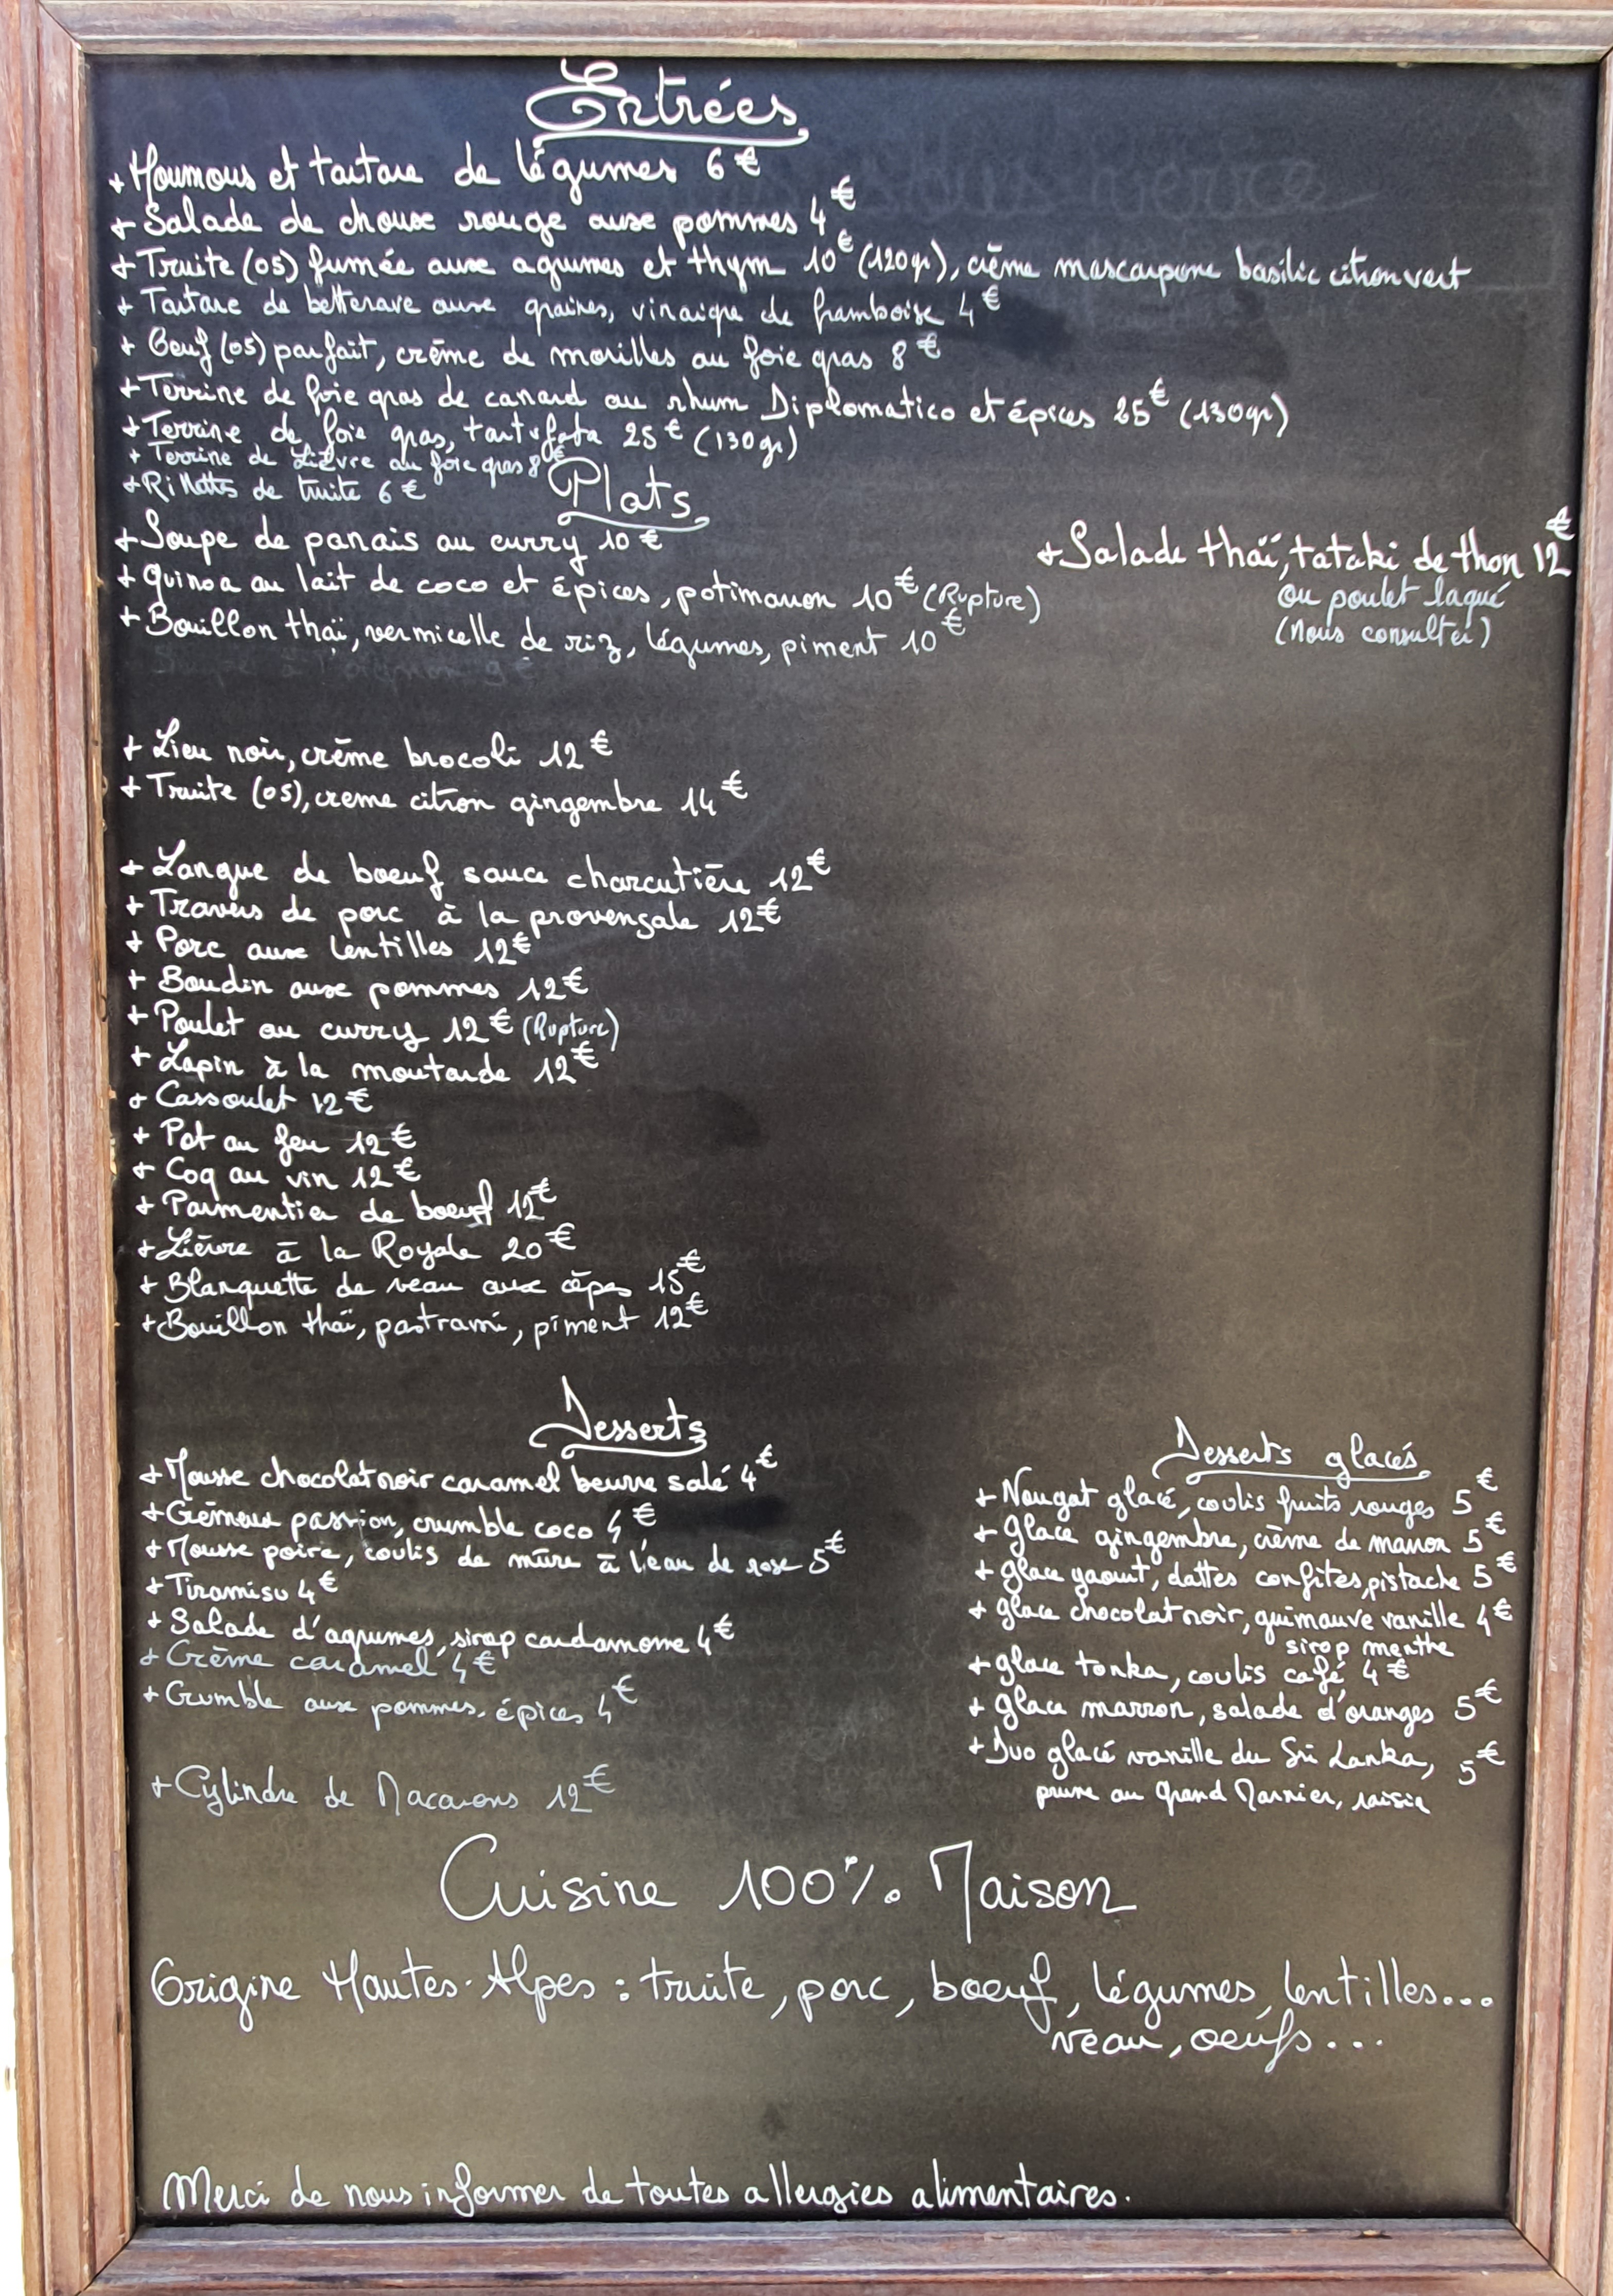 Entrées
+ Houmous et tartare de légumes 6 €
+ Salade de choux rouge aux pommes 4 €
+ Truite (05) fumée aux agrumes et thym 10 € (120gr), crème mascarpone basilic citron vert
+ Tartare de betterave aux graines, vinaigre de framboise 4 €
+ Oeuf (05) parfait, crème de morilles au foie gras 8 €
+ Terrine de foie gras de canard au rhum Diplomatico et épices 25 € (130gr)
+ Terrine de foie gras, tartufata 25 € (130gr)
+ Terrine de Lièvre au foie gras 8 €
+ Rillettes de truite 6 €
Plats
+ Soupe de panais au curry 10 €
+ Quinoa au lait de coco et épices, potimarron 10 € (Rupture)
+ Bouillon thaï, vermicelle de riz, légumes, piment 10 €
+ Salade thaï, tataki de thon 12 €
ou poulet laqué
(Nous consulter)
+ Lieu noir, crème brocoli 12 €
+ Truite (05), creme citron gingembre 14 €
+ Langue de boeuf sauce charcutière 12 €
+ Travers de porc à la provençale 12 €
+ Porc aux lentilles 12 €
+ Boudin aux pommes 12 €
+ Poulet au curry 12 € (Rupture)
+ Lapin à la moutarde 12 €
+ Cassoulet 12 €
+ Pot au feu 12 €
+ Coq au vin 12 €
+ Parmentier de boeuf 12 €
+ Lièvre à la Royale 20 €
+ Blanquette de veau aux cèpes 15 €
+ Bouillon thaï, pastrami, piment 12 €
Desserts
+ Mousse chocolat noir caramel beurre salé 4 €
+ Crémeux passion, crumble coco 4 €
+ Mousse poire, coulis de mûre à l'eau de rose 5 €
+ Tiramisu 4 €
+ Salade d'agrumes, sirop cardamome 4 €
+ Crème caramel 4 €
+ Crumble aux pommes, épices 4 €
+ Cylindre de Macarons 12 €
Desserts glacés
+ Nougat glacé, coulis fruits rouges 5 €
+ Glace gingembre, crème de marron 5 €
+ Glace yaourt, dattes confites, pistache 5 €
+ Glace chocolat noir, guimauve vanille 4 €
sirop menthe
+ Glace tonka, coulis café 4 €
+ Glace marron, salade d'oranges 5 €
+ Duo glacé vanille du Sri Lanka, 5 €
prune au Grand Marnier, raisin
Cuisine 100% Maison
Origine Hautes-Alpes : truite, porc, boeuf, légumes, lentilles...
veau, oeufs...
Merci de nous informer de toutes allergies alimentaires.